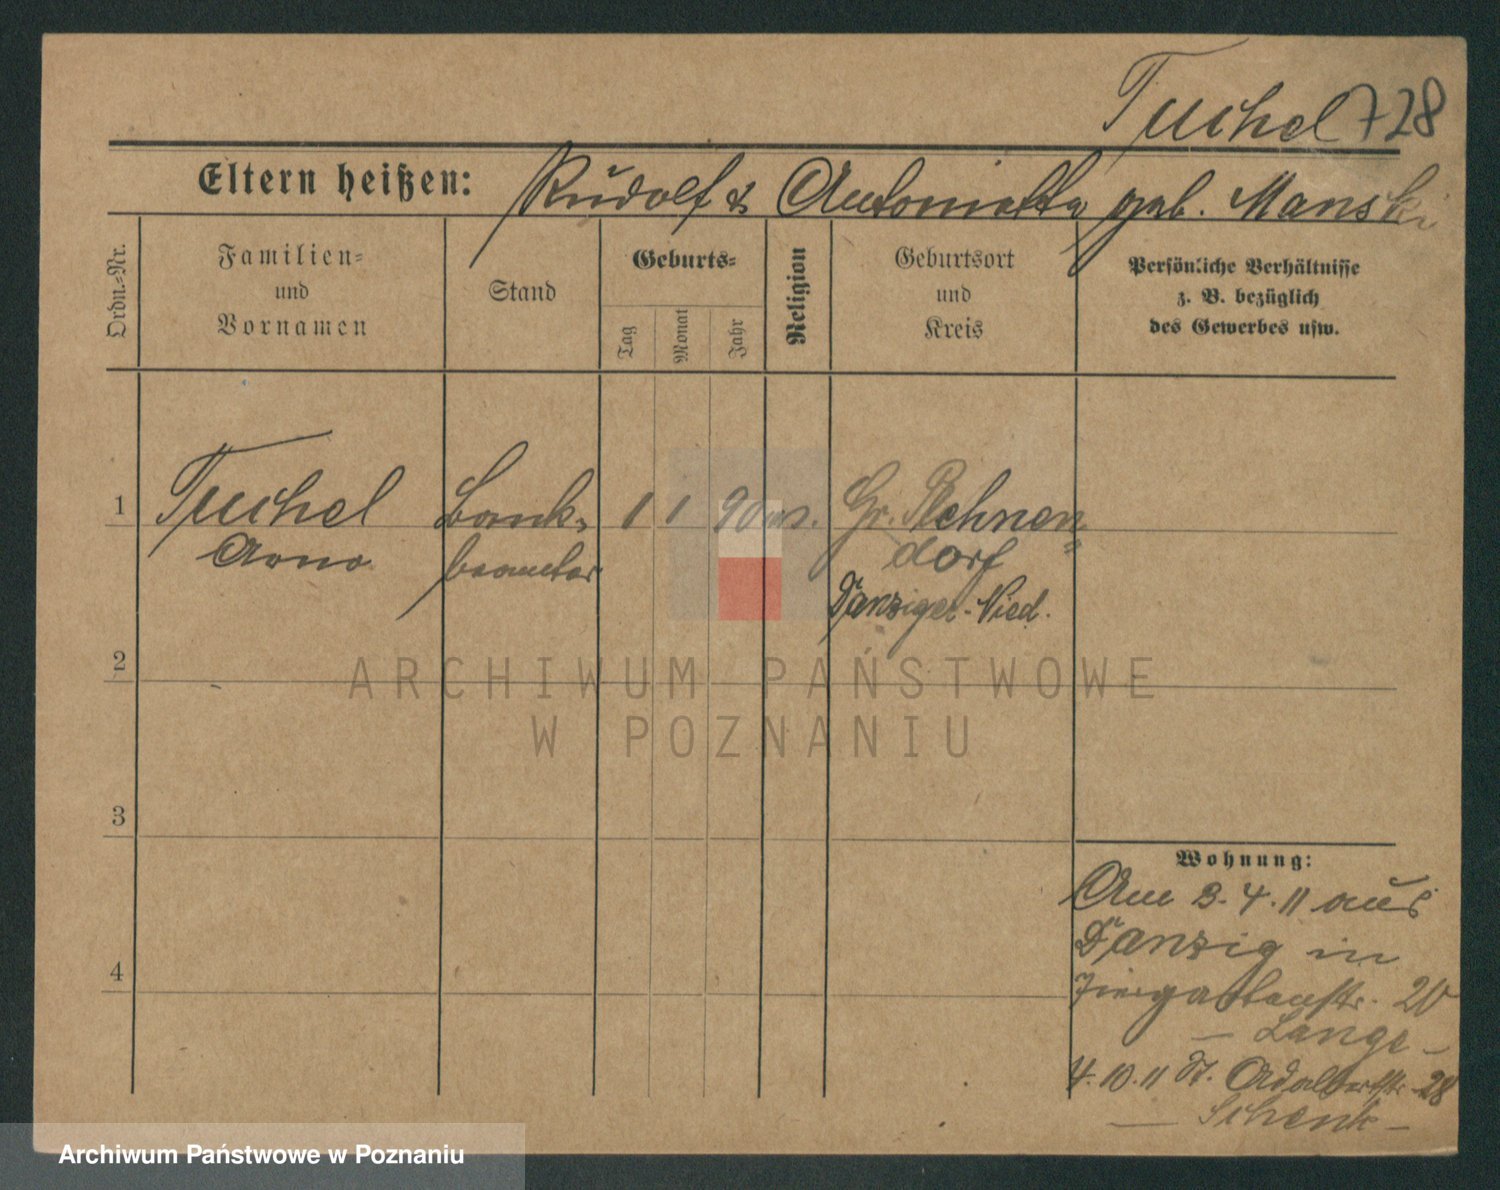 Tuchel 728
Eltern heißen: Rudolf & Antonietta geb. Manski
Ordn.-Nr.
Familien-
und
Vornamen
Stand
Geburts-
Tag
Monat
Jahr
Religion
Geburtsort
und
Kreis
Persönliche Verhältnisse
z. B. bezüglich
des Gewerbes usw.
1
Tuchel
Arno
Bank-
beamter
1 1 90
Gr. Plehnen
dorf
Danziger-Nied.
2
3
4
Wohnung:
Am 3.4.11 aus
Danzig in
20
— Lange —
4.10.11 St. Adalbertstr. 28
— Schenk —
ARCHIWUM PAŃSTWOWE
W POZNANIU
Archiwum Państwowe w Poznaniu